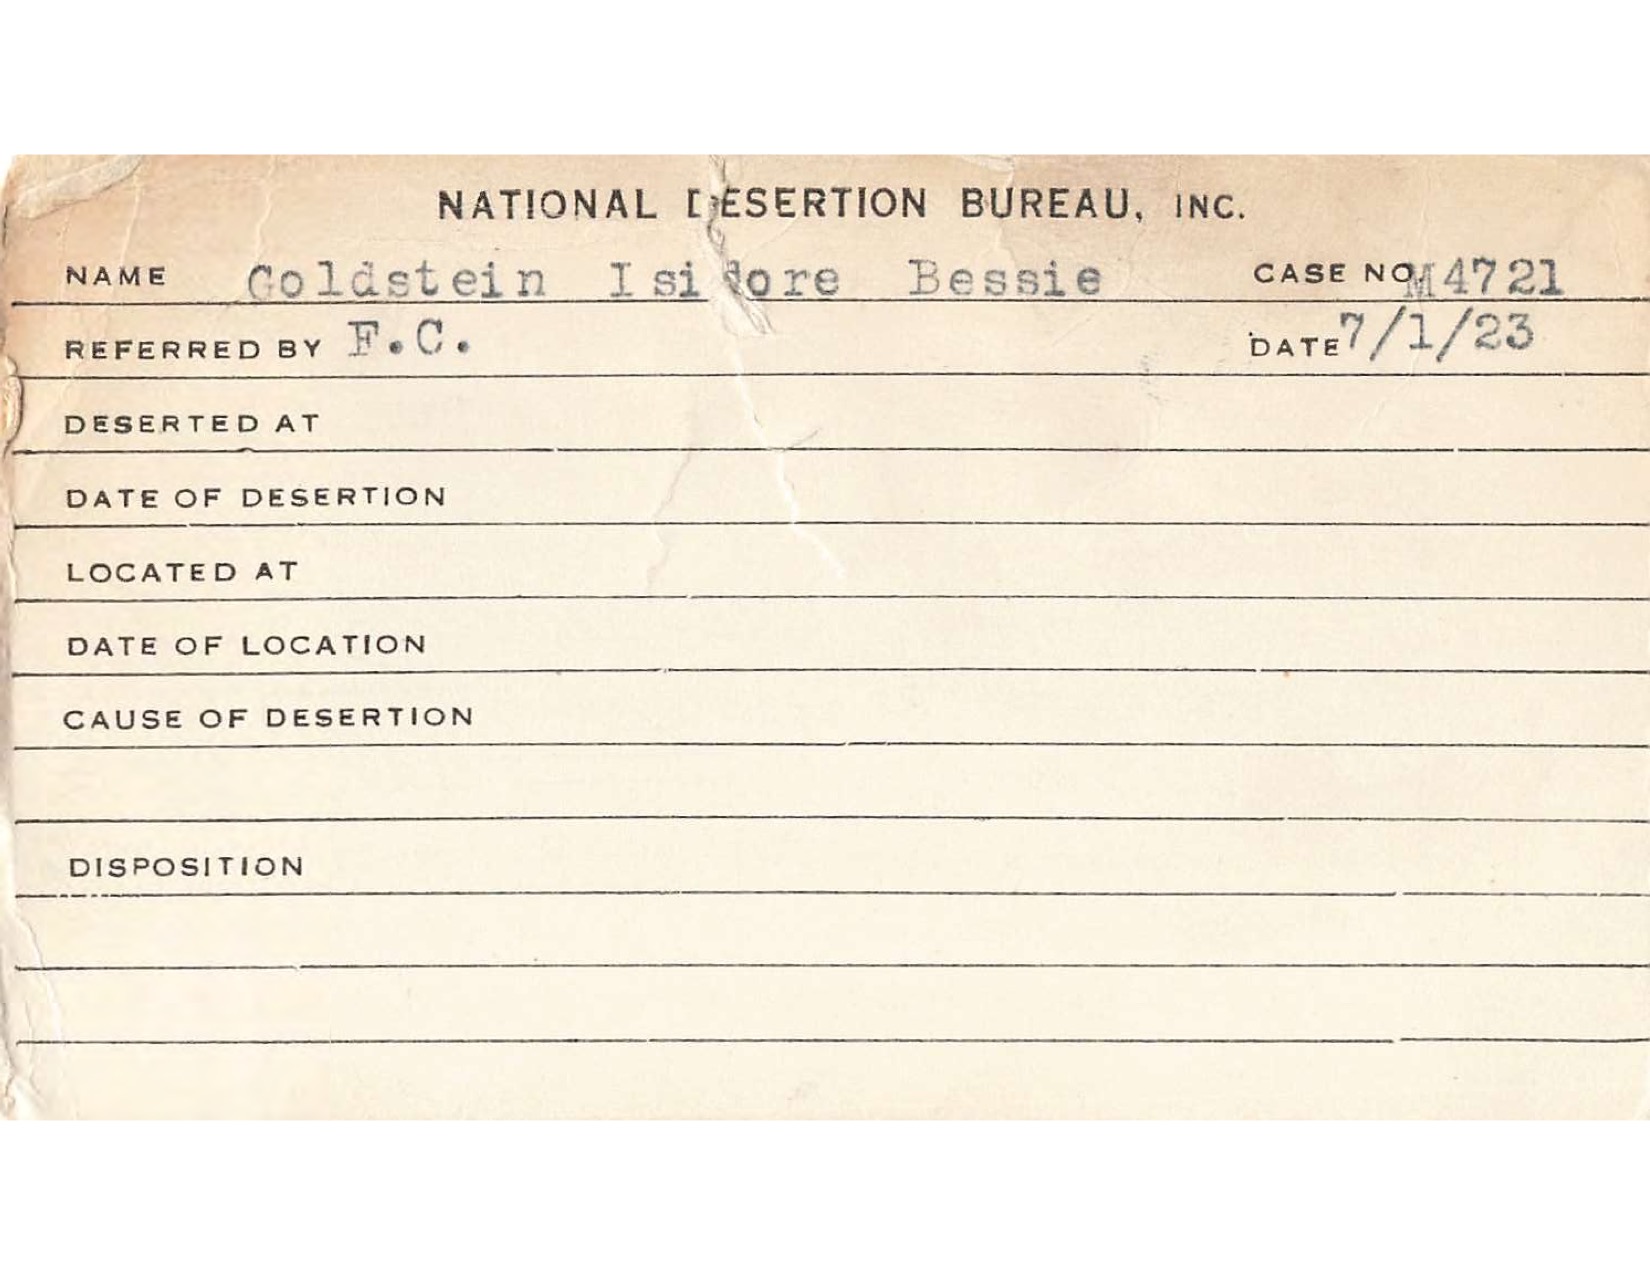 NATIONAL DESERTION BUREAU, INC.
NAME Goldstein Isidore Bessie CASE NO. M4721
REFERRED BY F.C. DATE 7/1/23
DESERTED AT
DATE OF DESERTION
LOCATED AT
DATE OF LOCATION
CAUSE OF DESERTION
DISPOSITION